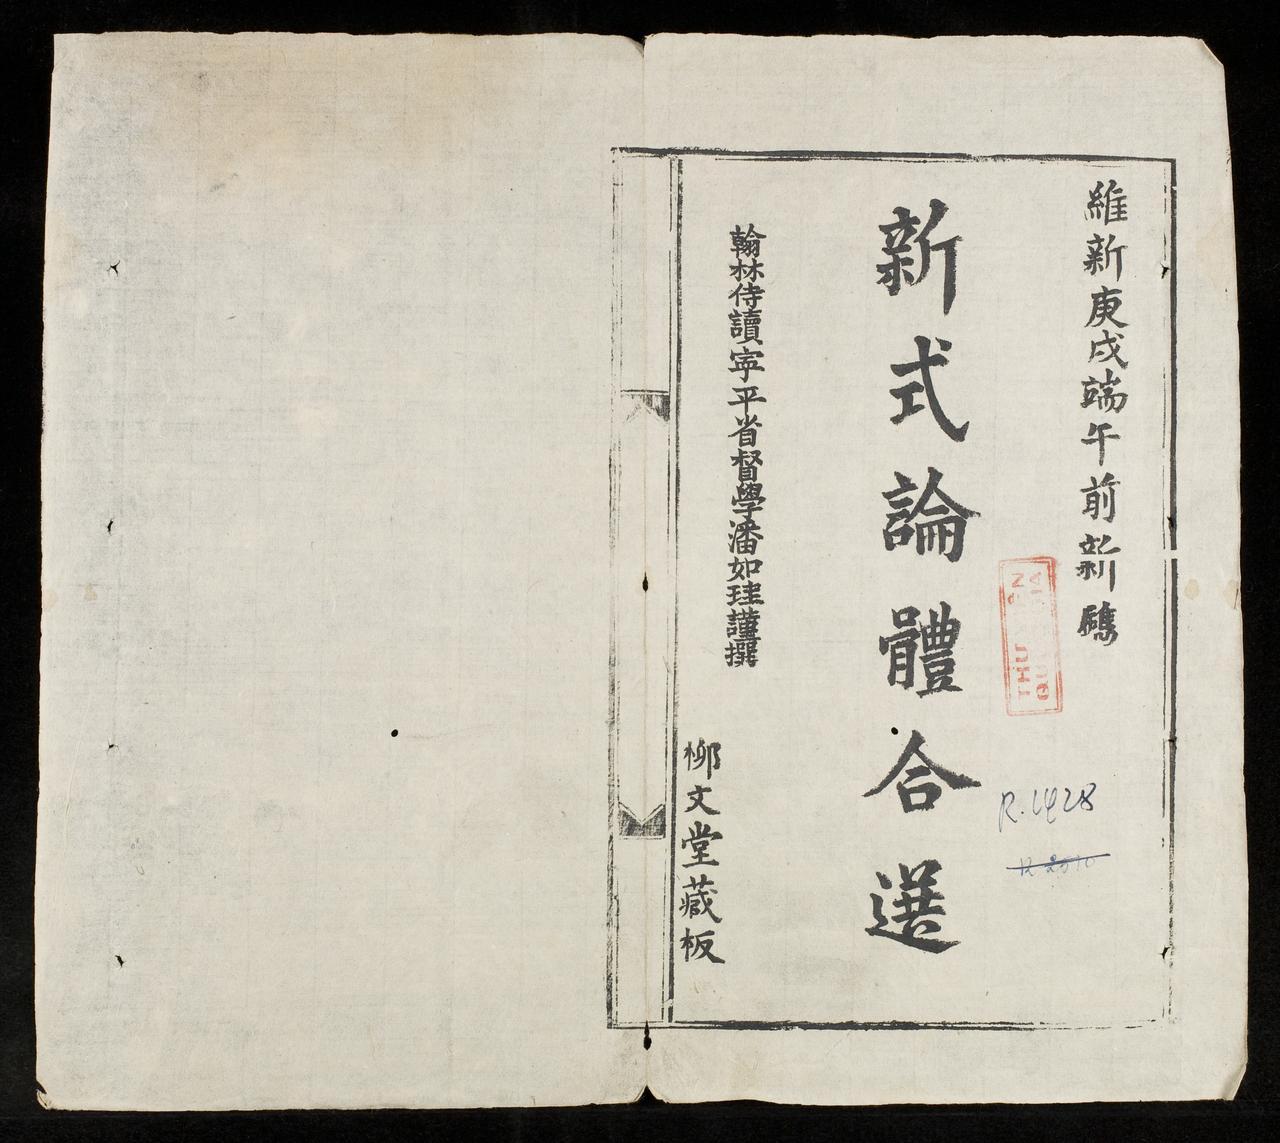 維新庚戌端午前新鐫
新式論體合選
翰林侍讀寧平省督學潘如珪謹撰
柳文堂藏板
THU
R.1428